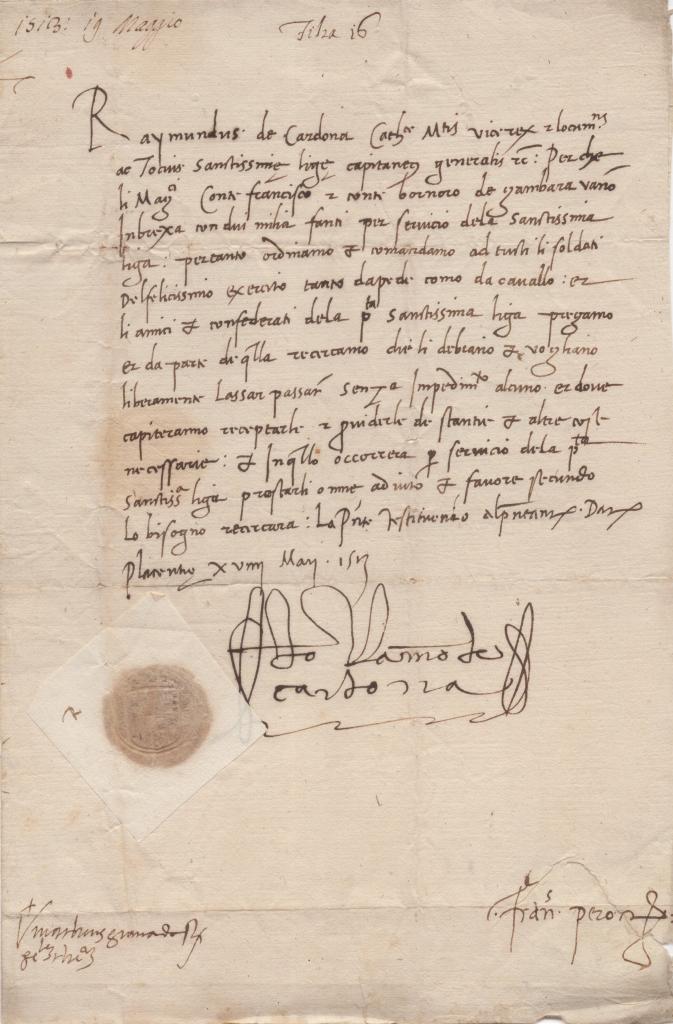 1513: 19 Maggio
Filza 16
Raymundus de Cardona Cathce Mtis vicerex & locumns
ac Tocius Sanctissimę ligę capitaneus generalis &c: Per che
li Magci Conte francisco & conte bornoro de gambara vano
In brexa con dui milia fanti per servicio dela Sanctissima
liga: pertanto ordinamo et comandamo ad tucti li soldati
Del felicissimo exercito tanto da pede como da cavallo: et
li amici et confederati dela pta Sanctissima liga pregamo
et da parte de qlla recercamo che li debiano et vogliano
liberamente Lassar passar senza Impedimto alcuno et dove
capiteranno receptarli & providerli de stantie et altre cose
necessarie: et In qllo occorrera p servicio dela pta
Sanctissa liga prestarli omne adiuto et favore secundo
Lo bisogno recercara: La Pnte
Placentię xviiii Maij 1513
Don Ramo de
cardona
Fran peron